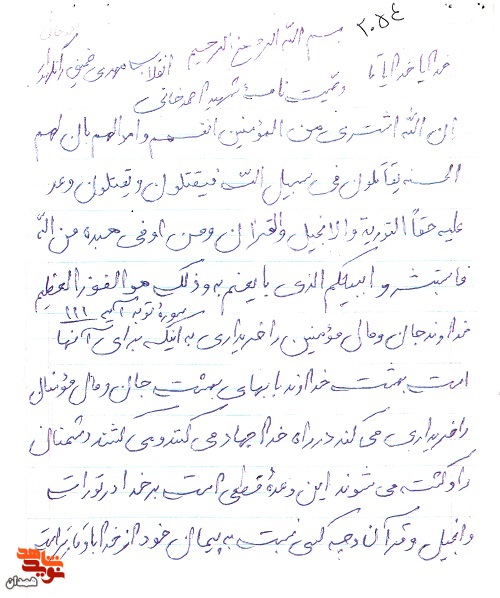 ۲۰۵۴
بسم الله الرحمن الرحیم
خدایا خدایا تا انقلاب مهدی خمینی را نگهدار
وصیت نامه شهید احمد خانی
ان الله اشتری من المؤمنین انفسهم و اموالهم بان لهم
الجنه یقاتلون فی سبیل الله فیقتلون و یقتلون وعد
علیه حقاً التوریة والانجیل والقران ومن اوفی هبده من الله
فاستبشروا ببیعکم الذی بایعتم به و ذلک هو الفوز العظیم
سورهٔ توبه آیه ۱۱۱
خداوند جان و مال مؤمنین را خریداری به اینکه برای آنها
است بهشت خداوند با بهای بهشت جان و مال مؤمنان
را خریداری می کند در راه خدا جهاد می کنند و می کشند دشمنان
را و کشته می شوند این وعدهٔ قطعی است بر خدا در تورات
وانجیل و قرآن و چه کسی نسبت به پیمان خود از خدا باوفاتر است
نوید شاهد
همدان